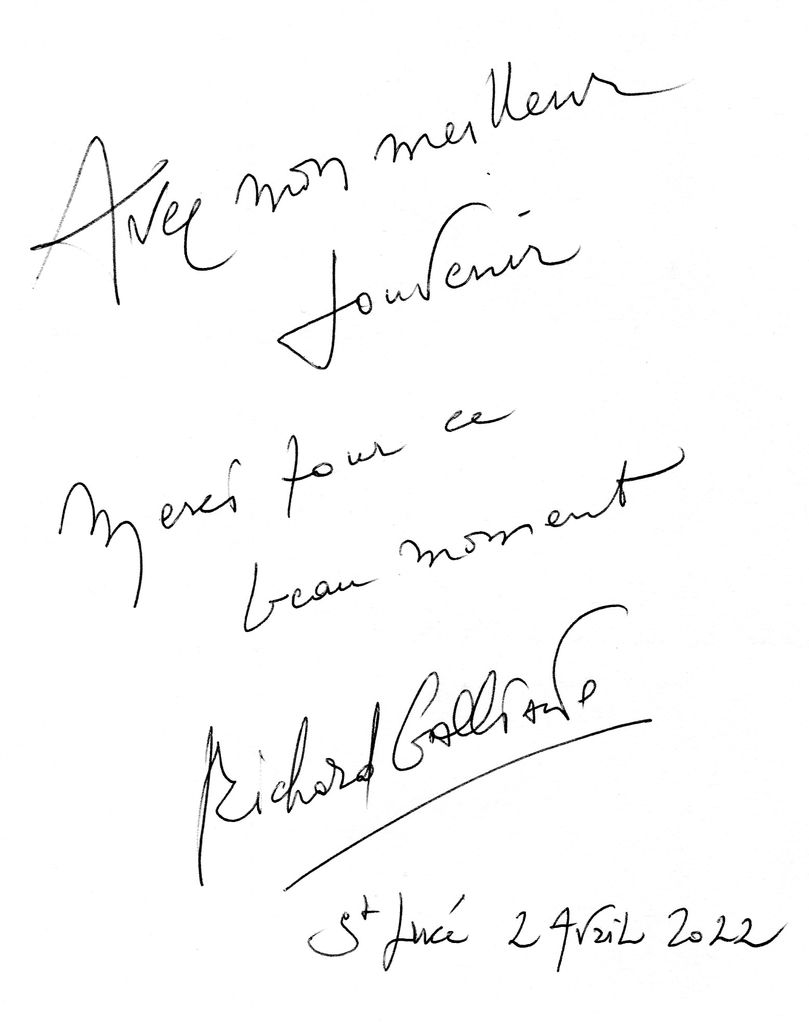 Avec mon meilleur
souvenir
Merci pour ce
beau moment
Richard Galliano
St Lucé 2 Avril 2022